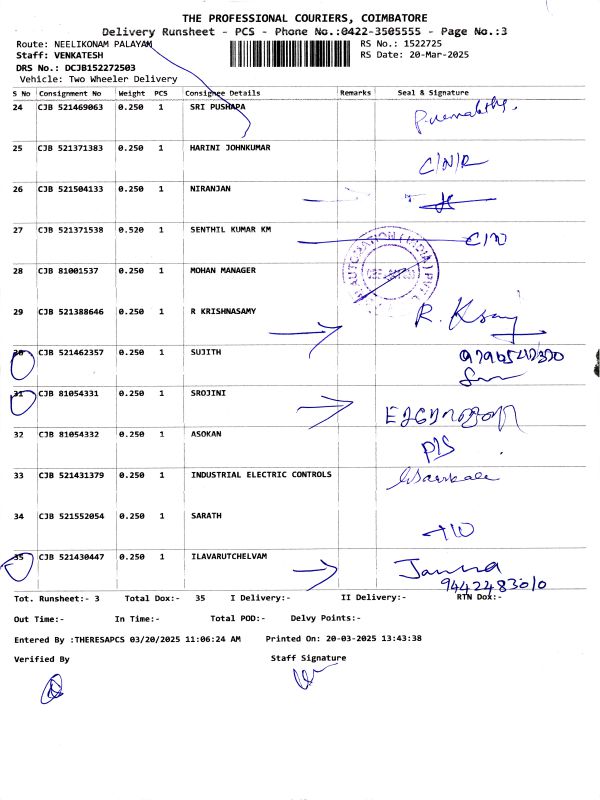 THE PROFESSIONAL COURIERS, COIMBATORE
Delivery Runsheet - PCS - Phone No.:0422-3505555 - Page No.:3
Route: NEELIKONAM PALAYAM RS No.: 1522725
Staff: VENKATESH RS Date: 20-Mar-2025
DRS No.: DCJB152272503
Vehicle: Two Wheeler Delivery
S No Consignment No Weight PCS Consignee Details Remarks Seal & Signature
24 CJB 521469063 0.250 1 SRI PUSHAPA
25 CJB 521371383 0.250 1 HARINI JOHNKUMAR C/N/R
26 CJB 521504133 0.250 1 NIRANJAN
27 CJB 521371538 0.520 1 SENTHIL KUMAR KM C/N
28 CJB 81001537 0.250 1 MOHAN MANAGER
29 CJB 521388646 0.250 1 R KRISHNASAMY R. Ksamy
30 CJB 521462357 0.250 1 SUJITH
31 CJB 81054331 0.250 1 SROJINI
32 CJB 81054332 0.250 1 ASOKAN
33 CJB 521431379 0.250 1 INDUSTRIAL ELECTRIC CONTROLS
34 CJB 521552054 0.250 1 SARATH
35 CJB 521430447 0.250 1 ILAVARUTCHELVAM
9442483010
Tot. Runsheet:- 3 Total Dox:- 35 I Delivery:- II Delivery:- RTN Dox:-
Out Time:- In Time:- Total POD:- Delvy Points:-
Entered By :THERESAPCS 03/20/2025 11:06:24 AM Printed On: 20-03-2025 13:43:38
Verified By Staff Signature